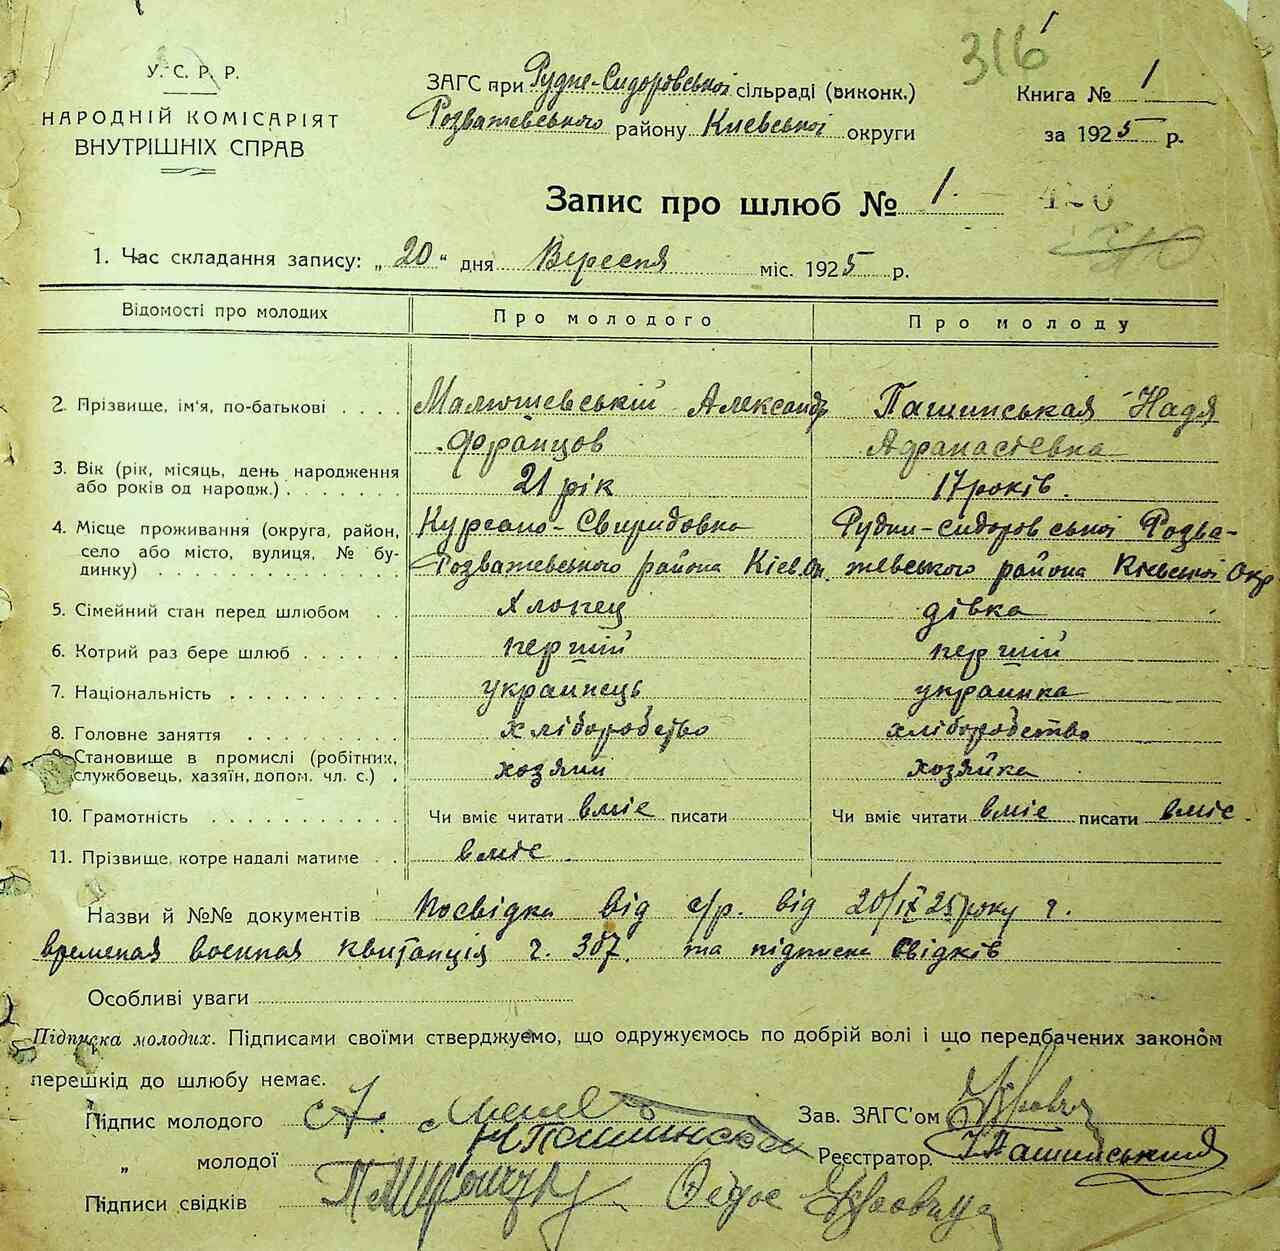 316
1
У. С. Р. Р.
НАРОДНІЙ КОМІСАРІЯТ
ВНУТРІШНІХ СПРАВ
ЗАГС при Рудне-Сидоровської сільраді (виконк.)
Розважевського району Киевської округи
Книга № 1
за 1925 р.
Запис про шлюб № 1.
1. Час складання запису: „20“ дня Вересня міс. 1925 р.
Відомості про молодих Про молодого Про молоду
2. Прізвище, ім'я, по-батькові Малюшевський Александр Пашинськая Надя
Францов Афанасіевна
3. Вік (рік, місяць, день народження
або років од народж.) 21 рік 17 років.
4. Місце проживання (округа, район, Курсано-Свиридовка Рудни-сидоровської Розва-
село або місто, вулиця, № бу-
динку) Розважевського района Кіев.Ок. жевського района Киівської Окр
5. Сімейний стан перед шлюбом хлопец дівка
6. Котрий раз бере шлюб перший перший
7. Національність украинець украинка
8. Головне заняття хліборобство хліборобство
9. Становище в промислі (робітник,
службовець, хазяїн, допом. чл. с.) хозяин хозяйка
10. Грамотність Чи вміє читати вміє писати Чи вміє читати вміє писати вміє.
11. Прізвище, котре надалі матиме вміє.
Назви й №№ документів Посвідка від с/р. від 20/IX 25 року ч.
временая военная квитанція ч. 367. та підписка свідків
Особливі уваги
Підписка молодих. Підписами своїми стверджуємо, що одружуємось по добрій волі і що передбачених законом
перешкід до шлюбу немає.
Підпис молодого А. Зав. ЗАГС'ом
„ молодої Н Пашинская Реєстратор. Пашинський
Підписи свідків Федос